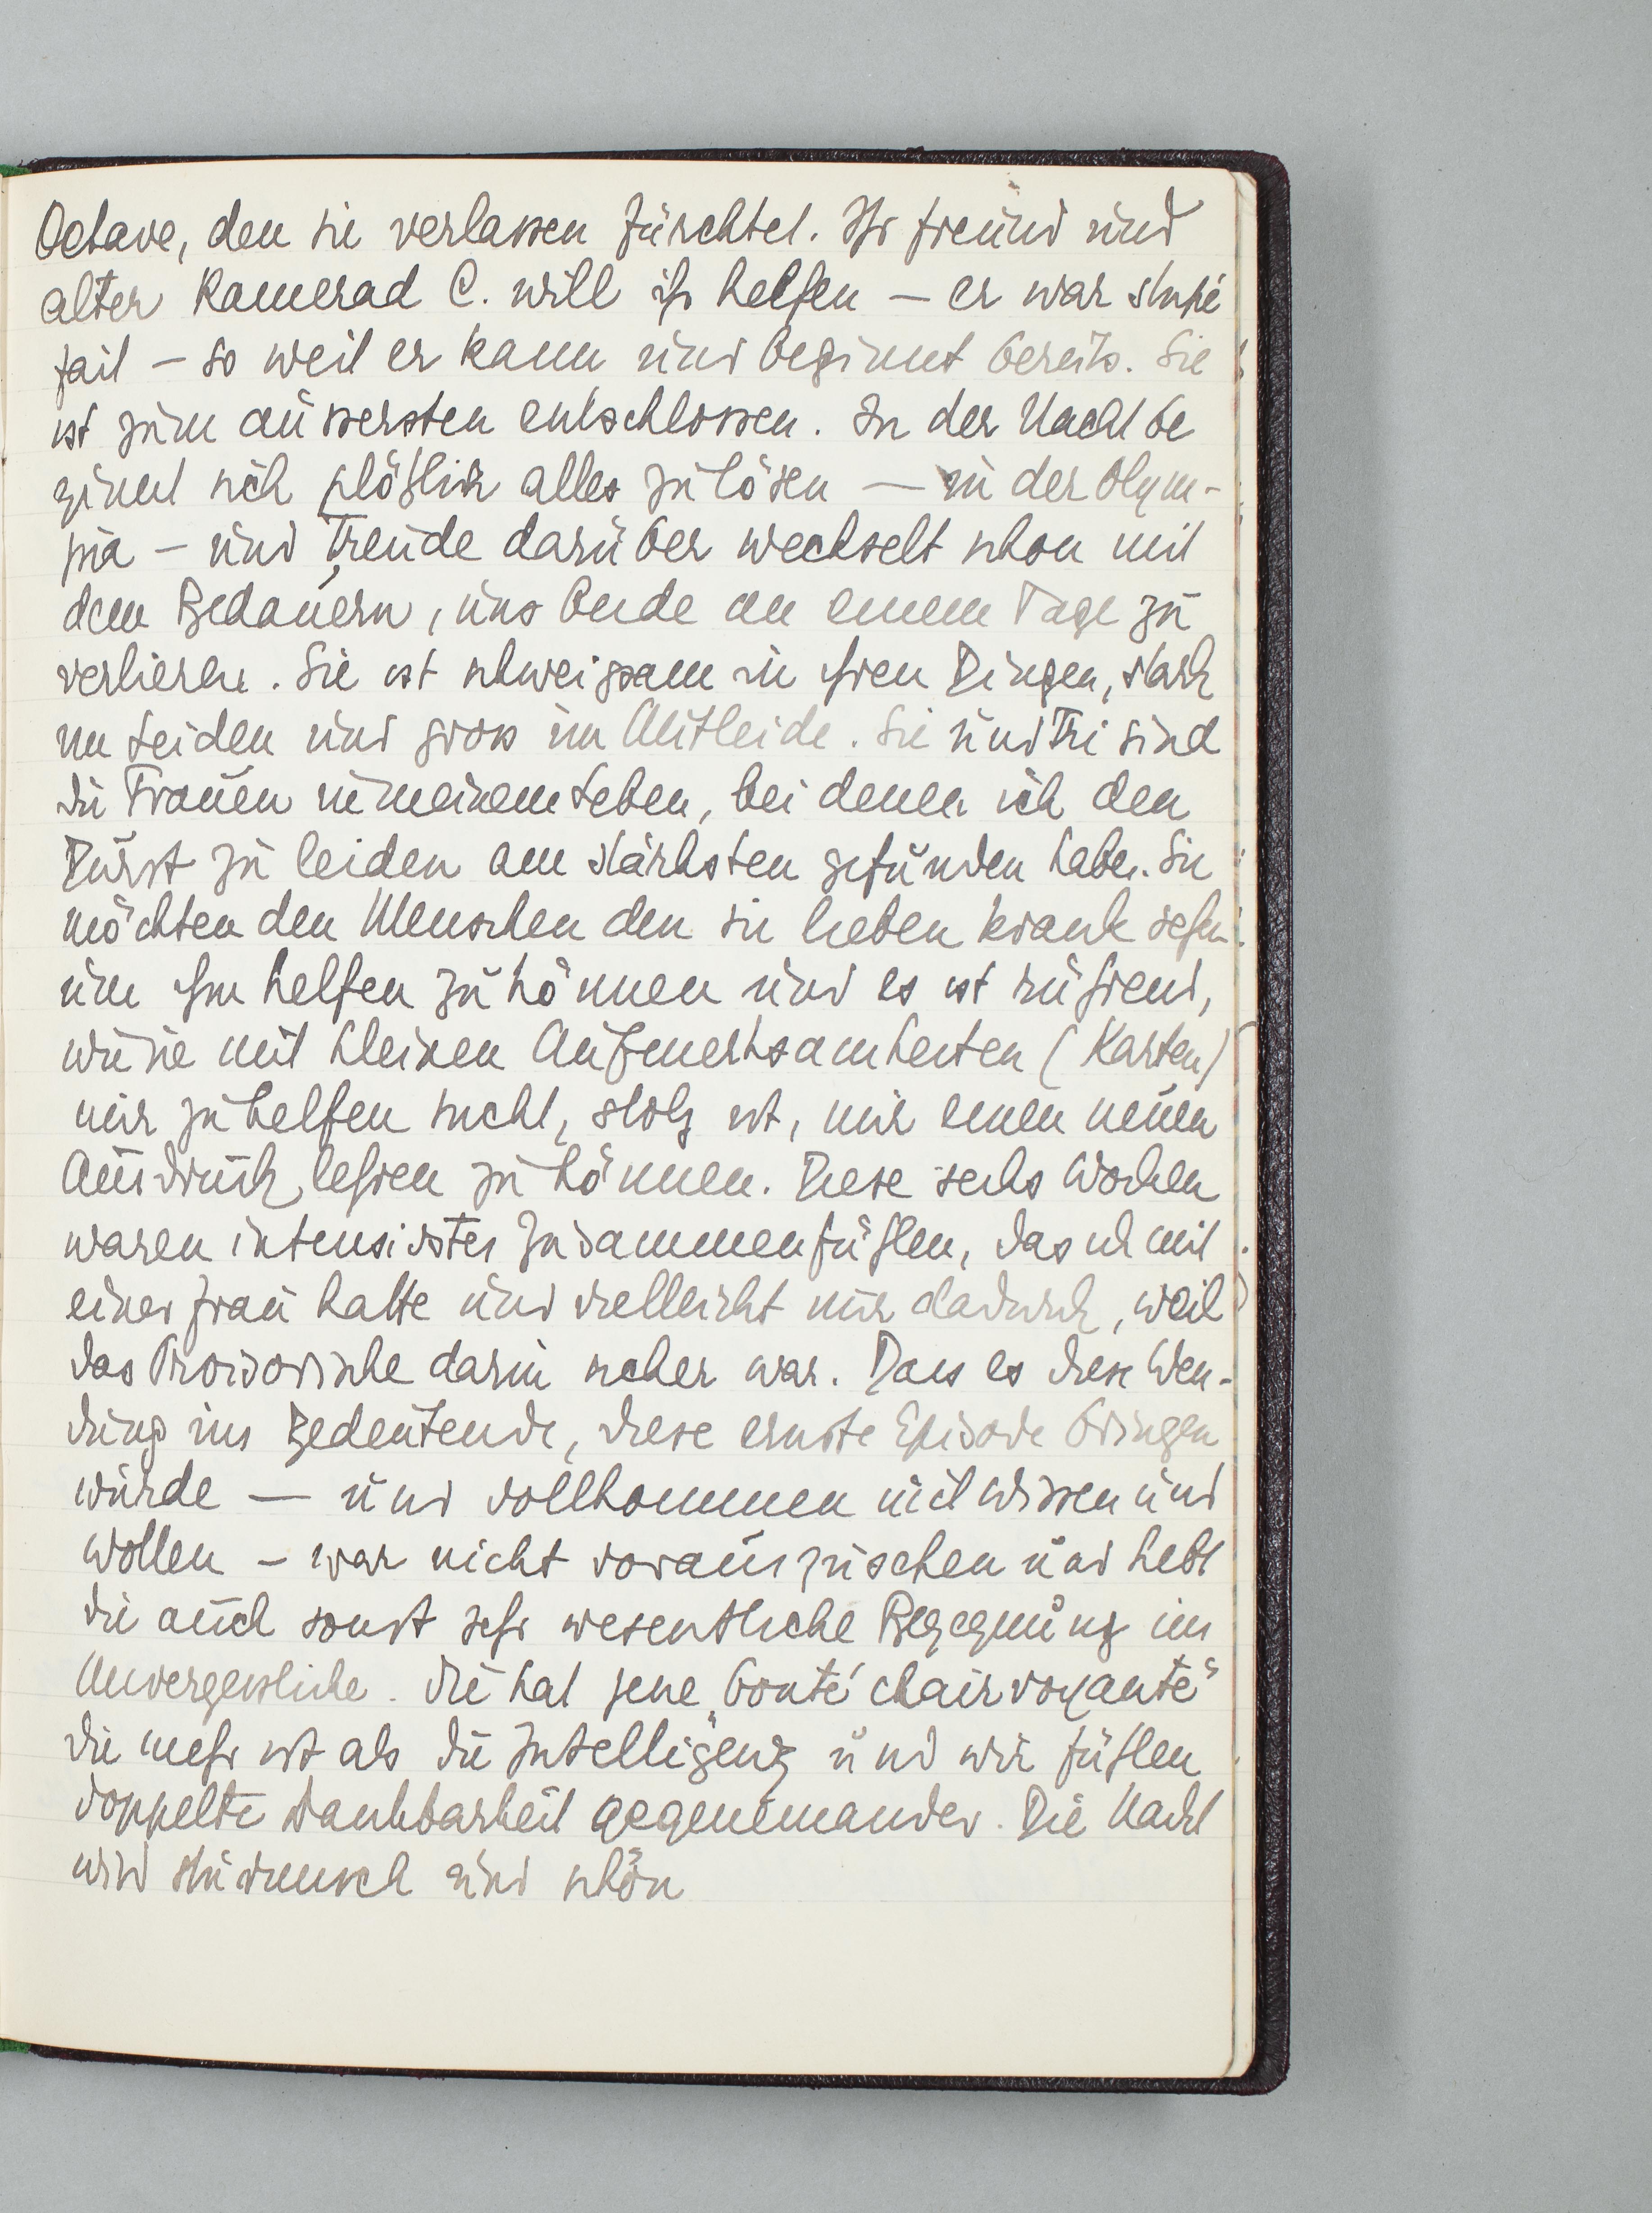 Octave, den sie verlassen fürchtet. Ihr Freund und
alter Kamerad C. will ihr helfen — er war stupé
fait — so weit er kann und beginnt bereits. Sie
ist zum äussersten entschlossen. In der Nacht be
ginnt sich plötzlich alles zu lösen — in der Olym-
pia — und Freude darüber wechselt schon mit
dem Bedauern, uns beide an einem Tage zu
verlieren. Sie ist schweigsam in ihren Dingen, stark
im Leiden und gross im Mitleide. Sie und Fri sind
die Frauen in meinem Leben, bei denen ich den
Durst zu leiden am stärksten gefunden habe. Sie
möchten den Menschen den sie lieben krank sehn
um ihm helfen zu können und es ist rührend,
wie sie mit kleinen Aufmerksamkeiten (Karten)
mir zu helfen sucht, stolz ist, mir einen neuen
Ausdruck lehren zu können. Diese sechs Wochen
waren intensivstes Zusammenfühlen, das ich mit
einer Frau hatte und vielleicht nur dadurch, weil
das Provisorische darin sicher war. Dass es diese Wen-
dung ins Bedeutende, diese ernste Episode bringen
würde — und vollkommen mit Wissen und
Wollen — war nicht vorauszusehen und hebt
die auch sonst sehr wesentliche Begegnung ins
Unvergessliche. Sie hat jene „bonté clairvoyante"
die mehr ist als die „Intelligenz und wir fühlen
doppelte Dankbarkeit gegeneinander. Die Nacht
wird stürmisch und schön